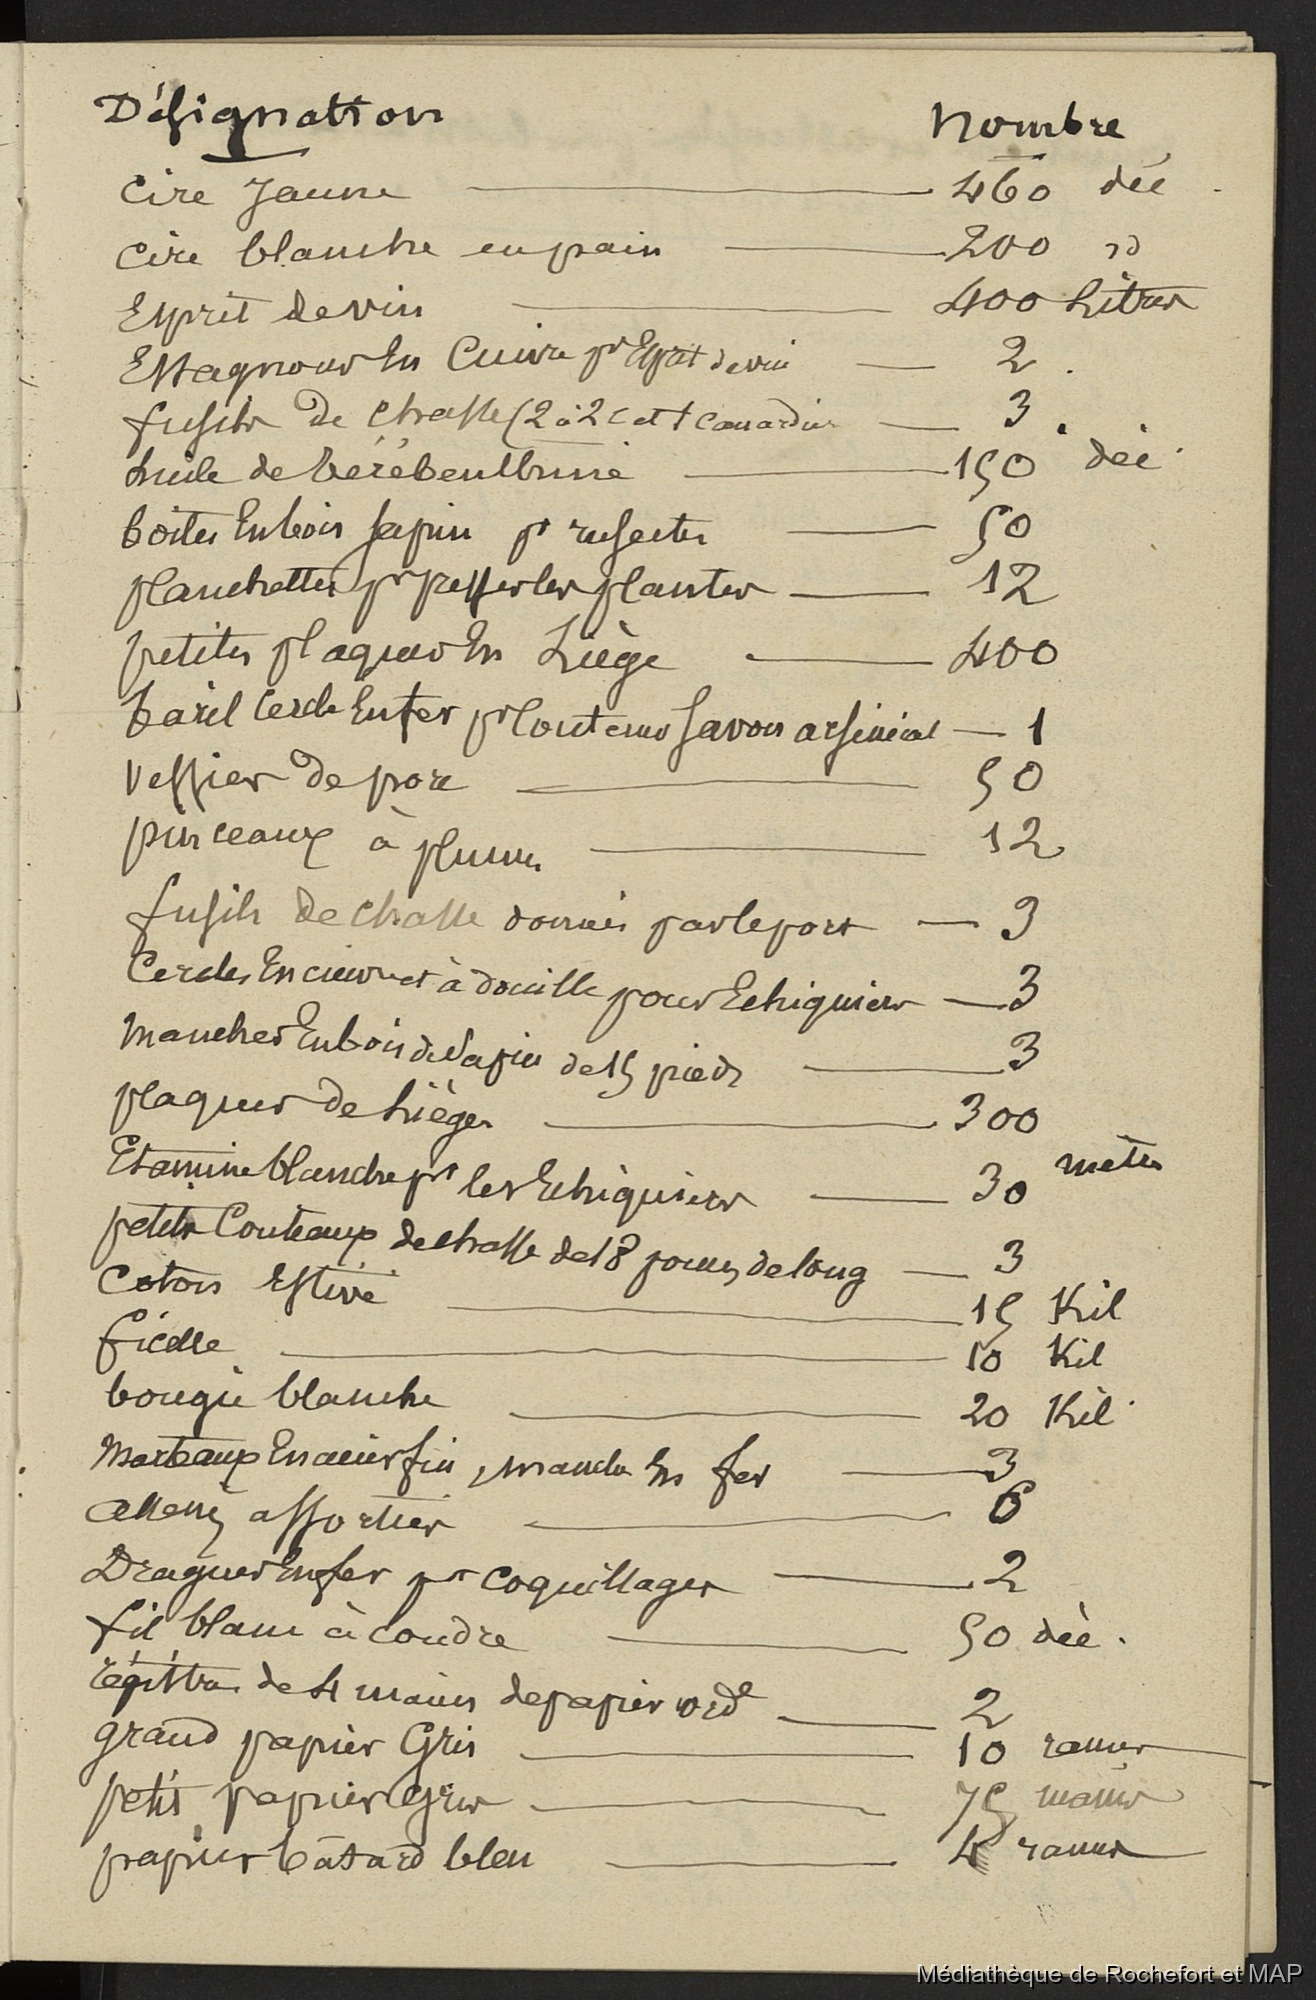 Désignation Nombre
Cire Jaune — 460 déc
Cire blanche en pain — 200 id
Esprit de vin — 400 Litres
Estagnons En Cuivre pr Esprit de vin — 2
fusils de chasse (2 à 2 c et 1 canardier — 3
huile de térébenthine — 150 déc
boites En bois sapin pr insectes — 50
planchettes pr presser les plantes — 12
petites plaques En Liège — 400
baril Cerclé En fer pr Contenir Savon arsénical — 1
Vessies de porc — 50
pinceaux à plumes — 12
fusils de chasse donnés par le port — 3
Cercles En cuivre et à douille pour Echiquiers — 3
Manches En bois de Sapin de 15 pieds — 3
plaques de Lièges — 300
Etamine blanche pr les Echiquiers — 30 mètres
petits Couteaux de chasse de 18 pouces de long — 3
Coton Estivé — 15 Kil
ficelle — 10 Kil
bougie blanche — 20 Kil
Marteaux En acier fin, manche En fer — 3
assorties — 6
Dragues En fer pr coquillages — 2
fil blanc à coudre — 50 déc.
régistres de 4 mains de papier ord — 2
grand papier Gris — 10 rames
petit papier Gris — 75 mains
papier bâtard bleu — 4 rames
Médiathèque de Rochefort et MAP